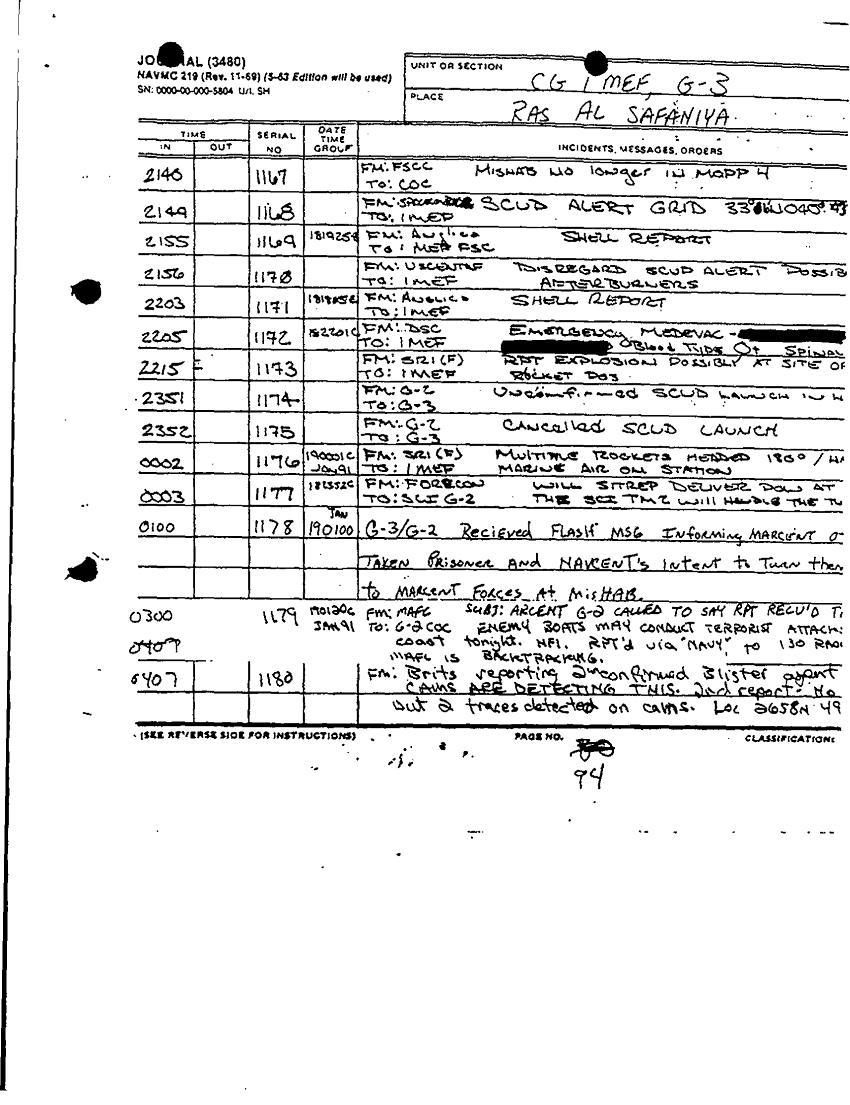 JOURNAL (3480)
NAVMC 219 (Rev. 11-69) (5-63 Edition will be used)
SN: 0000-00-000-5804 U/I. SH
UNIT OR SECTION
CG I MEF, G-3
PLACE
RAS AL SAFANIYA
TIME
IN OUT
SERIAL NO
DATE TIME GROUP
INCIDENTS, MESSAGES, ORDERS
2140 1167 FM: FSCC MISHAB NO longer IN MOPP 4
TO: COC
2149 1168 FM: SCUD ALERT GRID
TO: I MEF
2155 1169 181925Z FM: Anglico SHELL REPORT
TO: I MEF FSC
2156 1170 FM: USCENTAF DISREGARD SCUD ALERT POSSIB
TO: I MEF AFTERBURNERS
2203 1171 FM: ANGLICO SHELL REPORT
TO: I MEF
2205 1172 182201C FM: DSC EMERGENCY MEDEVAC -
TO: I MEF Blood TYPE O+ SPINAL
2215 1173 FM: SRI (F) RPT EXPLOSION POSSIBLY AT SITE OF
TO: I MEF ROCKET POS
2351 1174 FM: G-2 Unconfirmed SCUD LAUNCH IN
TO: G-3
2352 1175 FM: G-2 Cancelled SCUD LAUNCH
TO: G-3
0002 1176 190001C JAN91 FM: SRI (F) MULTIPLE ROCKETS HEADED 180° /
TO: I MEF MARINE AIR ON STATION
0003 1177 FM: FORECON WILL SITREP DELIVER DOW AT
TO: SCI G-2 THE SCI TM2 WILL HANDLE THE
0100 1178 JAN 190100 G-3/G-2 Recieved FLASH MSG INForming MARCENT
TAKEN PRISONER AND NAVCENT's Intent to Turn them
to MARCENT FORCES AT MisHAB.
0300 1179 190120C JAN91 FM: MAFC SUBJ: ARCENT G-2 CALLED TO SAY RPT RECV'D
TO: G-2 COC ENEMY BOATS MAY CONDUCT TERRORIST ATTACK
0407 coast tonight. NFI. RPT'd via "NAVY" to 130
MAFC IS BACKTRACKING.
0407 1180 FM: Brits reporting unconfirmed Blister agent
CAMS ARE DETECTING THIS. 2nd report: No
but 2 traces detected on cams. Loc 2658N 49
(SEE REVERSE SIDE FOR INSTRUCTIONS) PAGE NO. CLASSIFICATION:
94